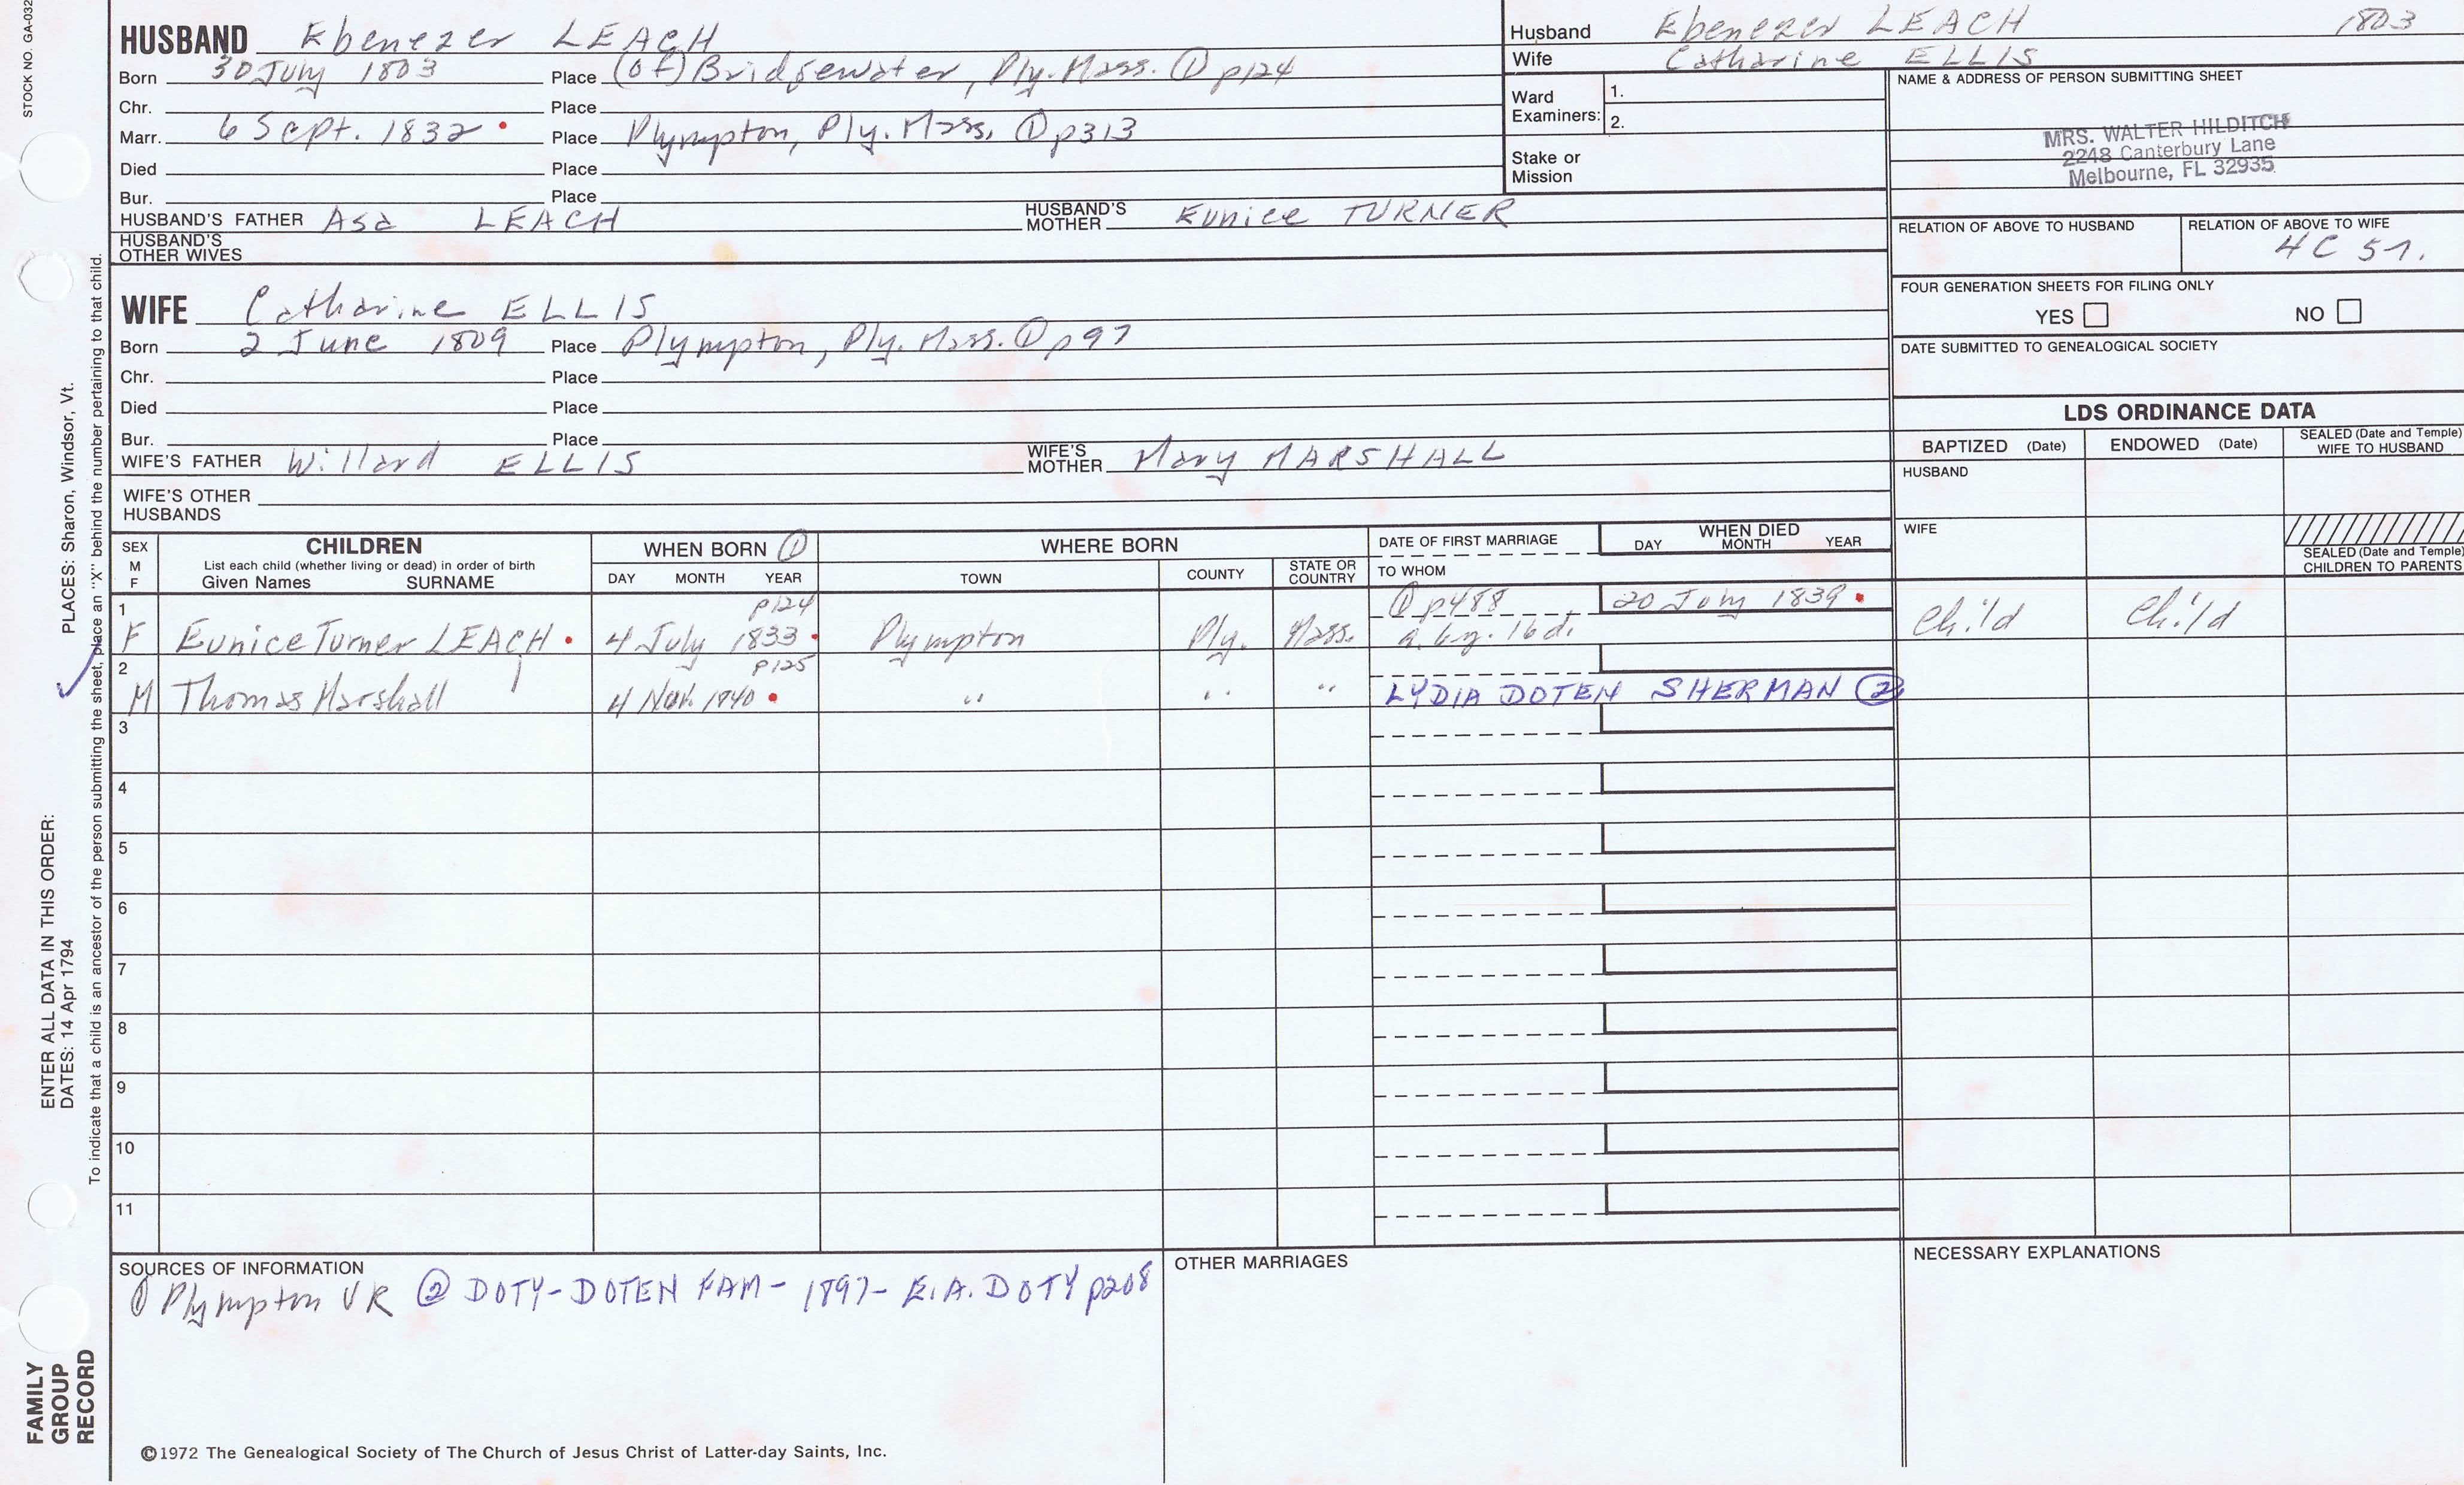 STOCK NO. GA-032
HUSBAND Ebenezer LEACH
Born 30 July 1803 Place (of) Bridgewater, Ply. Mass. ① p124
Chr. Place
Marr. 6 Sept. 1832 Place Plympton, Ply. Mass, ① p313
Died Place
Bur. Place
HUSBAND'S FATHER Asa LEACH HUSBAND'S MOTHER Eunice TURNER
HUSBAND'S OTHER WIVES
Husband Ebenezer LEACH 1803
Wife Catharine ELLIS
Ward Examiners: 1.
2.
Stake or Mission
NAME & ADDRESS OF PERSON SUBMITTING SHEET
MRS. WALTER HILDITCH
2248 Canterbury Lane
Melbourne, FL 32935
RELATION OF ABOVE TO HUSBAND RELATION OF ABOVE TO WIFE
4C
FOUR GENERATION SHEETS FOR FILING ONLY
YES NO
DATE SUBMITTED TO GENEALOGICAL SOCIETY
WIFE Catharine ELLIS
Born 2 June 1809 Place Plympton, Ply. Mass. ① p97
Chr. Place
Died Place
Bur. Place
WIFE'S FATHER Willard ELLIS WIFE'S MOTHER Mary MARSHALL
WIFE'S OTHER HUSBANDS
LDS ORDINANCE DATA
BAPTIZED (Date) ENDOWED (Date) SEALED (Date and Temple) WIFE TO HUSBAND
HUSBAND
WIFE
SEALED (Date and Temple) CHILDREN TO PARENTS
SEX M F CHILDREN List each child (whether living or dead) in order of birth Given Names SURNAME
WHEN BORN ① DAY MONTH YEAR
WHERE BORN TOWN COUNTY STATE OR COUNTRY
DATE OF FIRST MARRIAGE TO WHOM
WHEN DIED DAY MONTH YEAR
1 p124 ① p488 20 July 1839
F Eunice Turner LEACH 4 July 1833 Plympton Ply. Mass. a. 6y. 16d. Child Child
2 p125
M Thomas Marshall 4 Nov. 1840 " " " LYDIA DOTEN SHERMAN ②
3
4
5
6
7
8
9
10
11
SOURCES OF INFORMATION
① Plympton VR ② DOTY-DOTEN FAM- 1897- E.A. DOTY p208
OTHER MARRIAGES
NECESSARY EXPLANATIONS
©1972 The Genealogical Society of The Church of Jesus Christ of Latter-day Saints, Inc.
FAMILY
GROUP
RECORD
ENTER ALL DATA IN THIS ORDER:
DATES: 14 Apr 1794 PLACES: Sharon, Windsor, Vt.
To indicate that a child is an ancestor of the person submitting the sheet, place an "X" behind the number pertaining to that child.